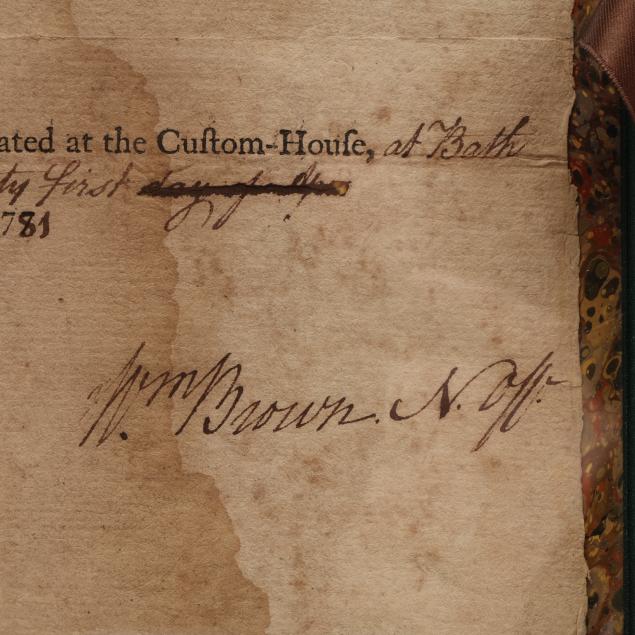 ated at the Cuſtom-Houſe, at Bath
ty first day of
781
Wm Brown. N. Off.